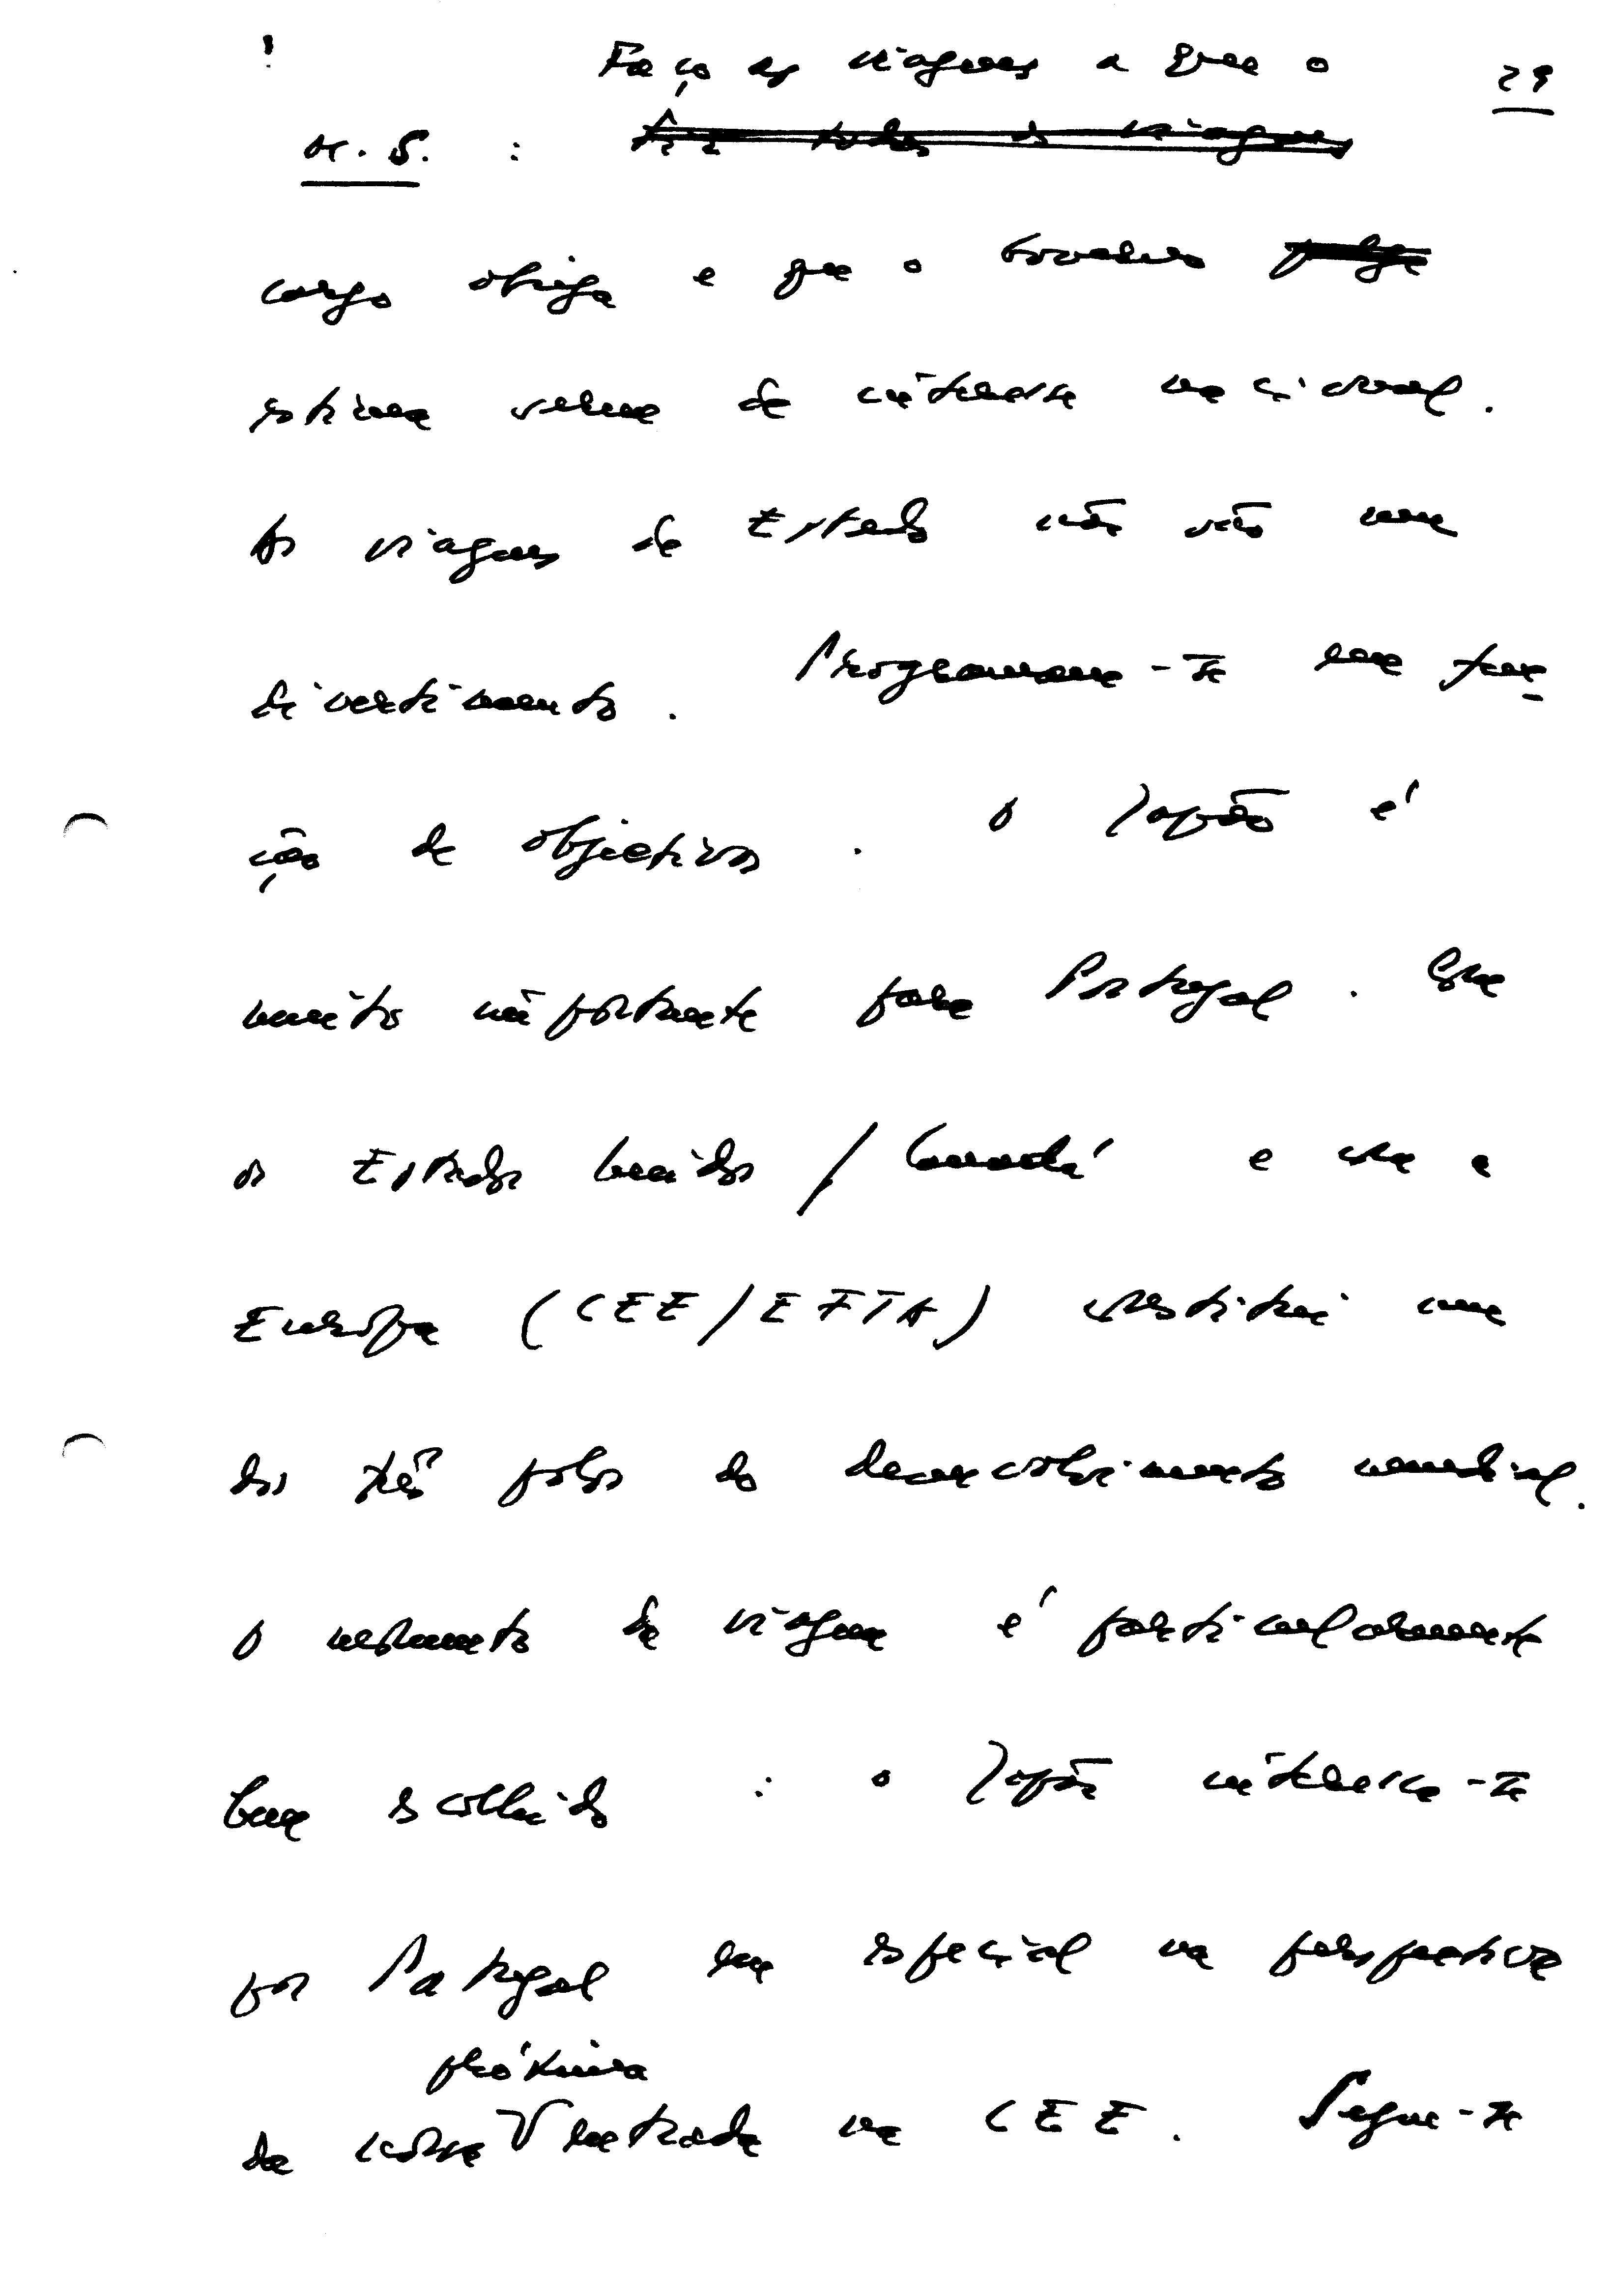 29
Faço as viagens a que o
M. S. : Fiz todas as viagens
cargo obriga e que o Governo julga
estima serem de interesse nacional.
As viagens de Estado não são um
divertimento. Programam-se em fun-
ção de objectivos. O Japão é
muito importante para Portugal. Com
os Estados Unidos / Canadá e com a
Europa (CEE/EFTA) constitui um
dos três polos do desenvolvimento mundial.
O momento da viagem é particularmente
bem escolhido : o Japão interessa-se
por Portugal em especial na perspectiva
próxima
da nossa V entrada na CEE. Segue-se